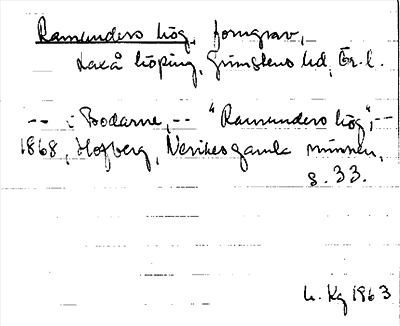 Ramunders hög, forngrav,
Laxå köping, Grimstens hd, Ör. l.
-- i Bodarne, -- "Ramunders hög", --
1868, Hofberg, Nerikes gamla minnen,
s. 33.
Kg 1963